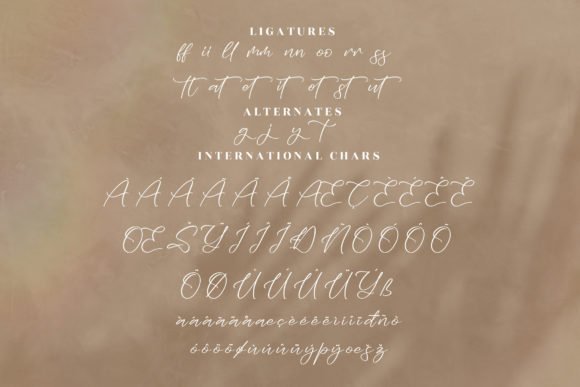 LIGATURES
ff ii ll mm nn oo rr ss
tt at et it ot st ut
ALTERNATES
g j y T
INTERNATIONAL CHARS
À Á Â Ã Ä Å Æ Ç È É Ê Ë
Œ Š Ÿ Ì Í Î Ï Ð Ñ Ò Ó Ô Õ
Ö Ø Ù Ú Û Ü Ý ß
à á â ã ä å æ ç è é ê ë ì í î ï đ ñ ò
ó ô õ ö ø ù ú û ü ý þ ÿ œ š ž